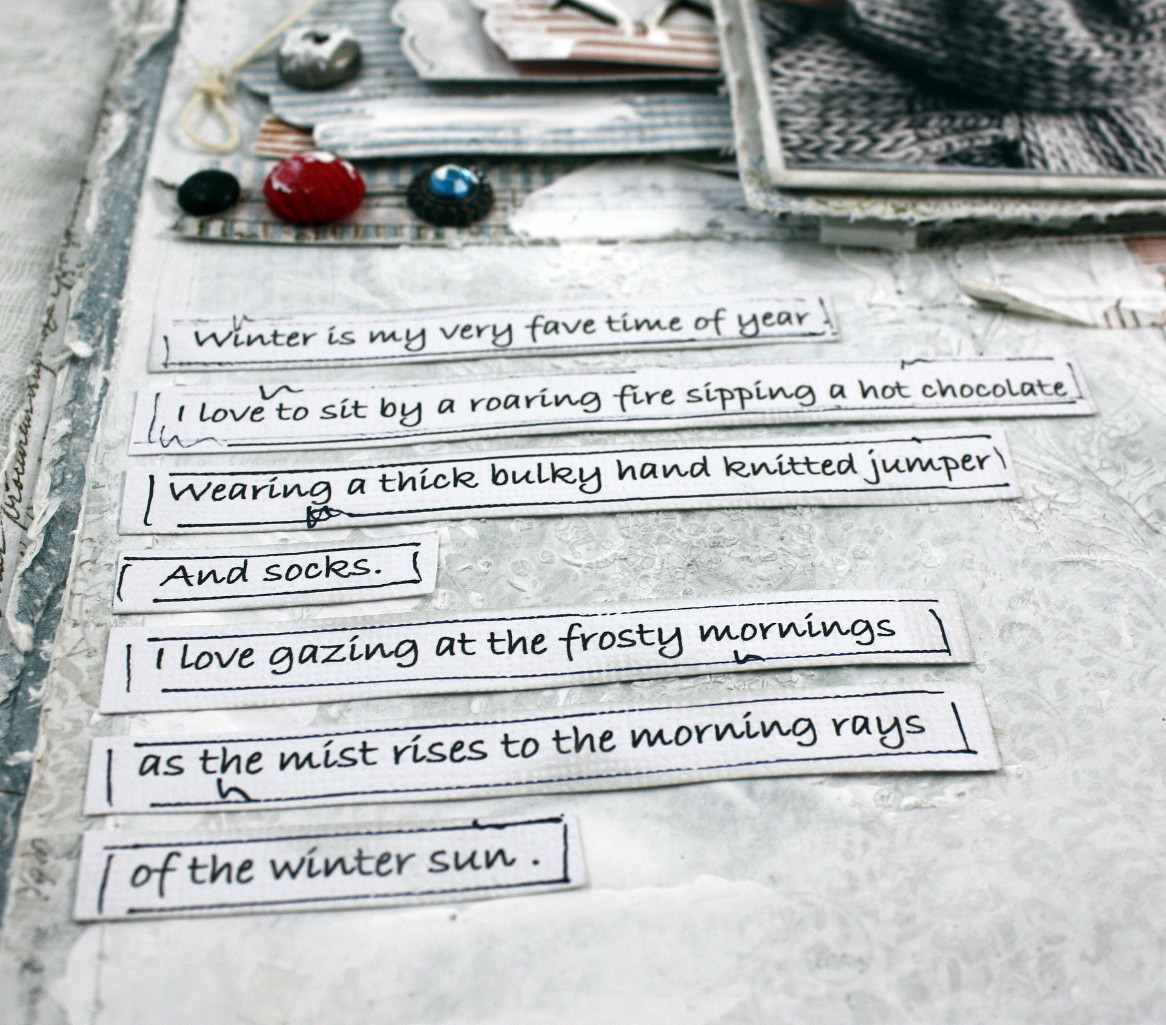 Winter is my very fave time of year
I love to sit by a roaring fire sipping a hot chocolate
Wearing a thick bulky hand knitted jumper
And socks.
I love gazing at the frosty mornings
as the mist rises to the morning rays
of the winter sun .